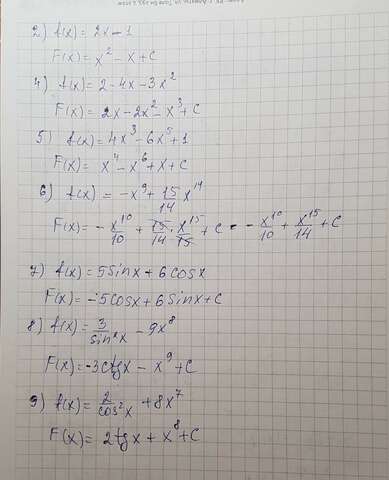 2) f(x) = 2x - 1
F(x) = x² - x + C
4) f(x) = 2 - 4x - 3x²
F(x) = 2x - 2x² - x³ + C
5) f(x) = 4x³ - 6x⁵ + 1
F(x) = x⁴ - x⁶ + x + C
6) f(x) = -x⁹ + 15/14 x¹⁴
F(x) = - x¹⁰/10 + 15/14 · x¹⁵/15 + C = - x¹⁰/10 + x¹⁵/14 + C
7) f(x) = 5sinx + 6cosx
F(x) = -5cosx + 6sinx + C
8) f(x) = 3/sin²x - 9x⁸
F(x) = -3ctgx - x⁹ + C
9) f(x) = 2/cos²x + 8x⁷
F(x) = 2tgx + x⁸ + C